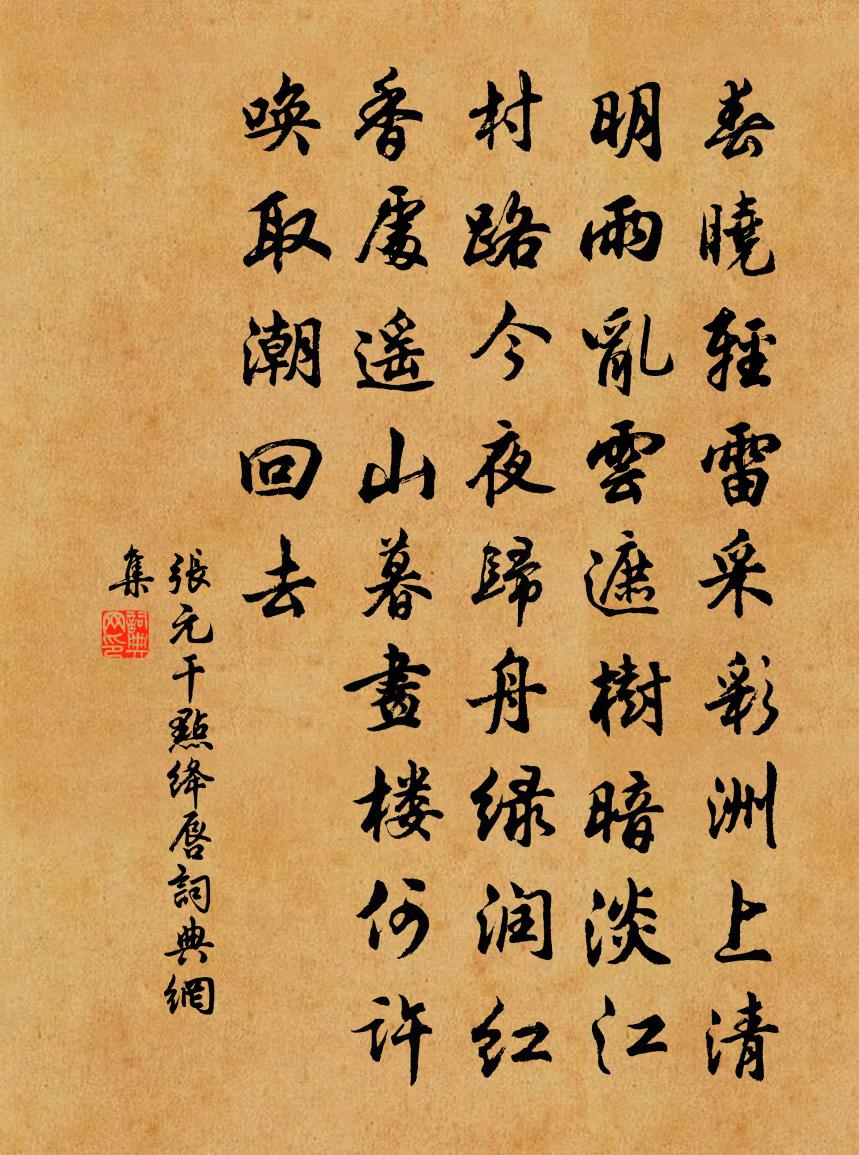 春曉輕雷采彩洲上清
明雨亂雲遮樹暗淡江
村路今夜歸舟绿润红
香處遥山暮畫楼何许
唤取潮回去
張元干點绛唇詞典網
集
詞典網印